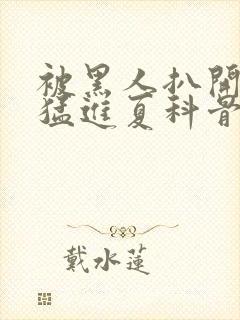 被黑人扒開
猛進夏科骨
戴水蓮